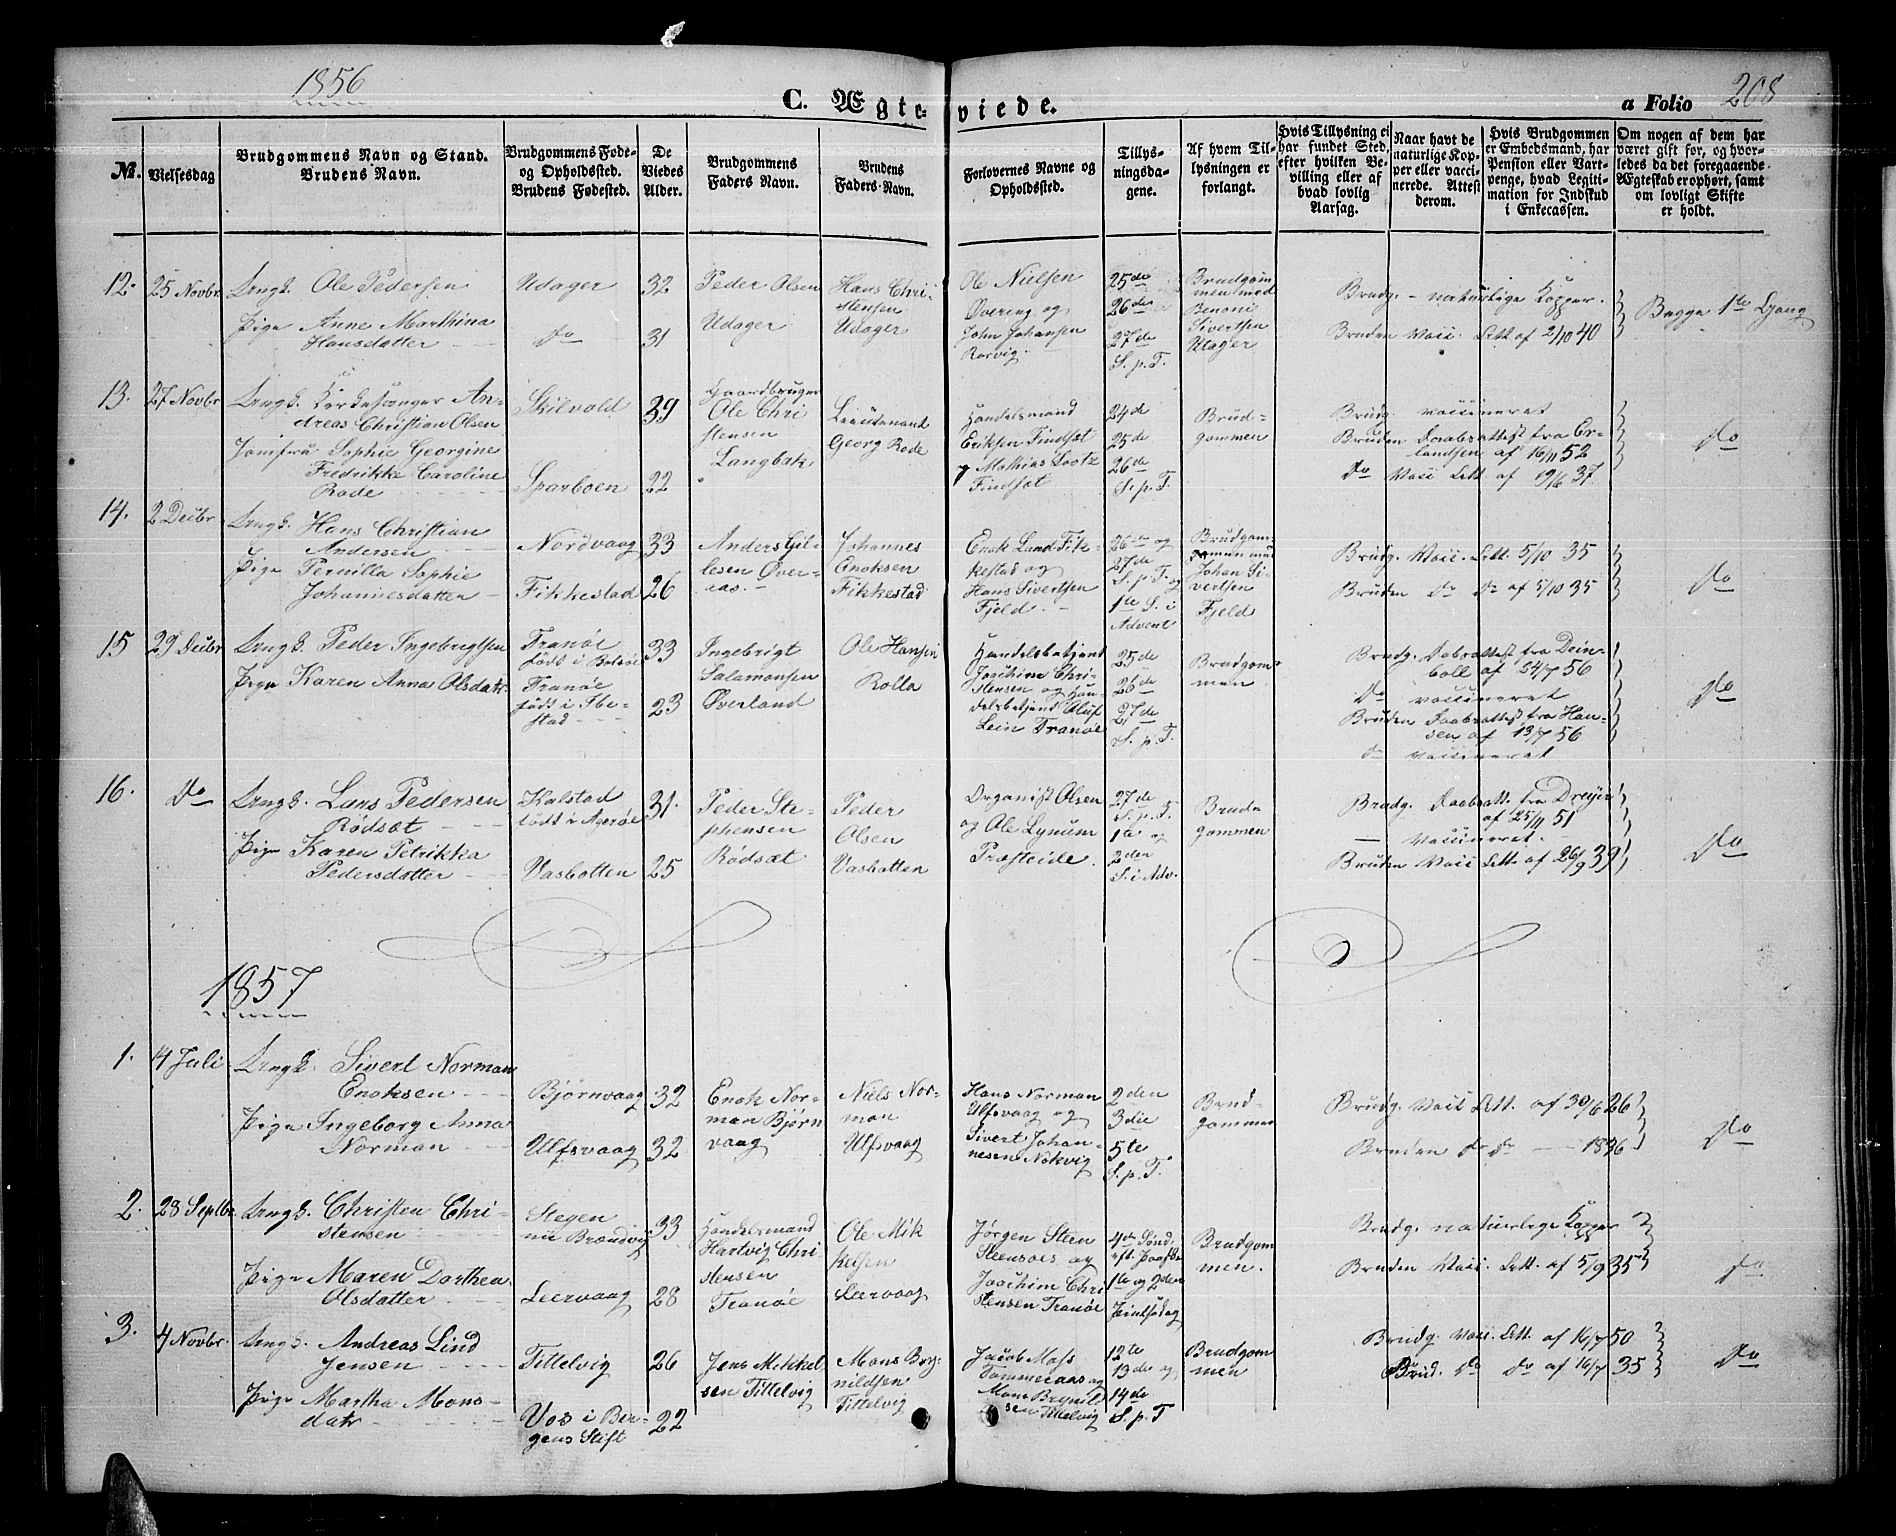 1856
C. Ægteviede.
a Folio 208
№.
Vielsesdag
Brudgommens Navn og Stand.
Brudens Navn.
Brudgommens Føde-
og Opholdssted.
Brudens Fødested.
De
Viedes
Alder.
Brudgommens
Faders Navn.
Brudens
Faders-Navn.
Forlovernes Navne og
Opholdssted.
Tillys-
ningsda-
gene.
Af hvem Til-
lysningen er
forlangt.
Hvis Tillysning ei
har fundet Sted
efter hvilken Be-
villing eller af
hvad lovlig
Aarsag.
Naar havt de
naturlige Kop-
per eller vacci-
nerede. Attest
derom.
Hvis Brudgommen
er Embedsmand, har
Pension eller Vart-
penge, hvad Legiti-
mation for Indskud
i Enkecassen.
Om nogen af dem har
været gift før, og hvor-
ledes da det foregaaende
Ægteskab er ophørt, samt
om lovligt Skifte
er holdt.
12. 25 Novbr. Ungk. Ole Pedersen
Pige Anne Marthina
Hansdatter
Udager
do
32
31
Peder Olsen
Udager
Hans Chri-
stensen
Udager
Ole Nielsen
Øvereng og
John Johansen
Rørvig.
25de
26de
27de
S. p. T.
Brudgom-
men med
Benoni
Sivertsen
Udager
Brudg. - naturlige Kopper.
Bruden Vacc. Att. af 2/10 40
Begge 1te Gang
13. 27 Novbr Ungk. Kirkesanger An-
dreas Christian Olsen
Jomfru Sophie Georgine
Fredrikke Caroline
Rode
Skilvold
Sparboen
39
22
Gaardbruger
Ole Chri
stensen
Langbak.
Lieutenant
Georg Rode
Handelsmand
Eriksen Findsæt
Mathias Lootz
Findsæt
24de
25de
26de
S. p. T.
Brud-
gommen
Brudg. vaccineret
Bruden Daabsattest fra Ør-
landsen af 16/11 52
Do Vacc Att. af 19/6 37
Do
14. 2 Decbr Ungk. Hans Christian
Andersen
Pige Pernilla Sophie
Johannesdatter
Nordvaag
Fikkestad
33
26
Anders Gil-
lesen Øver-
aas.
Johannes
Enoksen
Fikkestad
Enok Lund Fik-
kestad og
Hans Sivertsen
Fjeld.
26de og
27de
S. p. T og
1te S. i
Advent
Brudgom-
men med
Johan Si-
vertsen
Fjeld
Brudg. Vacc. Att. 5/10 35
Bruden do do af 5/10 35
Do
15 29 Decbr Ungk. Peder Ingebrigtsen
Pige Karen Anna Olsdatr.
Tranøe
født i Bolsøe
Tranøe
født i Ibe-
stad
33
23
Ingebrigt
Salamonsen
Øverland
Ole Hansen
Rolla
Handelsbetjent
Joachim Chri-
stensen og Han-
delsbetjent Oluf
Lein Tranøe
25de
26de
27de
S. p. T.
Brudgom-
men.
Brudg. Dabsattest fra Dein-
boll af 24/7 56
do vaccineret
Bruden Daabsattest fra Han-
sen af 13/7 56
do vaccineret
Do
16. Do Ungk. Lars Pedersen
Rødsæt
Pige Karen Petrikka
Pedersdatter
Kalstad
født i Agerøe
Vasbotten
31.
25
Peder Ste-
phensen
Rødsæt
Peder
Olsen
Vasbotten
Organist Olsen
og Ole Lynum
Præsteide.
27de
S. p. T.
1te og
2den
S. i Adv.
Brud-
gommen
Brudg. Daabsatt. fra Dreyer
af 25/11 51
— Vaccineret.
Bruden Vacc Att. af 26/9 39
Do
1857
1. 4 Juli Ungk. Sivert Norman
Enoksen
Pige Ingeborg Anna
Norman
Bjørnvaag
Ulfsvaag
32
32
Enok Nor-
man Bjørn
vaag
Niels Nor-
man
Ulfsvaag
Hans Norman
Ulfsvaag og
Sivert Johan-
nesen Nokvig
2den
3die
5te
S. p. T.
Brud-
gommen
Brudg. Vacc Att. af 30/6 26
Bruden do do — 1836
Do
2. 28 Septbr. Ungk. Christen Chri-
stensen
Pige Maren Dorthea
Olsdatter
Stegen
nu Brændvig
Leervaag
33
28
Handelsmand
Hartvig Chri
stensen
Tranøe
Ole Mik
kelsen
Leervaag
Jørgen Steen
Steensoes og
Joachim Chri
stensen Tranøe
4de Sønd.
eft. Paaske
1te og 2den
Pintsedag
Brudgom
men.
Brudg. naturlige Kopper
Bruden Vacc. Att. af 5/9 35
Do
3. 4 Novbr. Ungk. Andreas Lind
Jensen
Pige Martha Mons-
datr
Tittelvig
Vos i Ber-
gens Stift
26
22
Jens Mikkel
sen Tittelvig
Mons Bryn-
nildsen
Tittelvig
Jacob Mass
Tommeraas og
Mons Brynild
sen Tittelvig
12te
13de og
14de
S. p. T
Brudgom
men
Brudg. Vacc. Att. af 16/7 50
Brud. do do af 16/7 35
Do